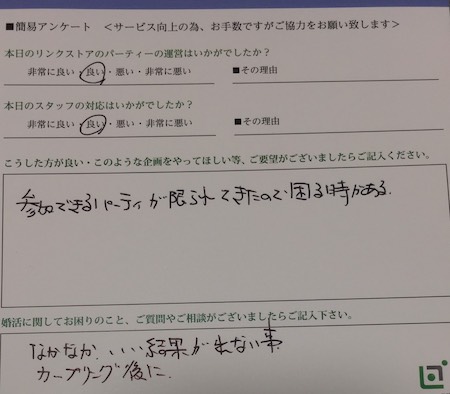 ■簡易アンケート ＜サービス向上の為、お手数ですがご協力をお願い致します＞
本日のリンクストアのパーティーの運営はいかがでしたか？
非常に良い・良い・悪い・非常に悪い ■その理由
本日のスタッフの対応はいかがでしたか？
非常に良い・良い・悪い・非常に悪い ■その理由
こうした方が良い・このような企画をやってほしい等、ご要望がございましたらご記入ください。
参加できるパーティが限られてきたので困る時がある.
婚活に関してお困りのこと、ご質問やご相談がございましたらご記入下さい。
なかなか、いい結果が出ない事
カップリング後に.